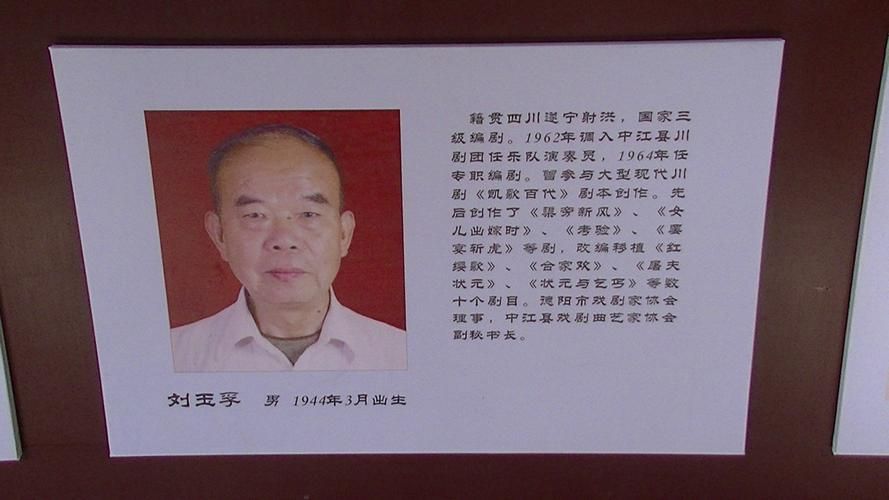 籍贯四川遂宁射洪，国家三
级编剧。1962年调入中江县川
剧团任乐队演奏员，1964年任
专职编剧。曾参与大型现代川
剧《凯歌百代》剧本创作。先
后创作了《渠旁新风》、《女
儿出嫁时》、《考验》、《罢
宴斩虎》等剧，改编移植《红
绫歌》、《合家欢》、《屠夫
状元》、《状元与乞丐》等数
十个剧目。德阳市戏剧家协会
理事，中江县戏剧曲艺家协会
副秘书长。
刘玉孚 男 1944年3月出生